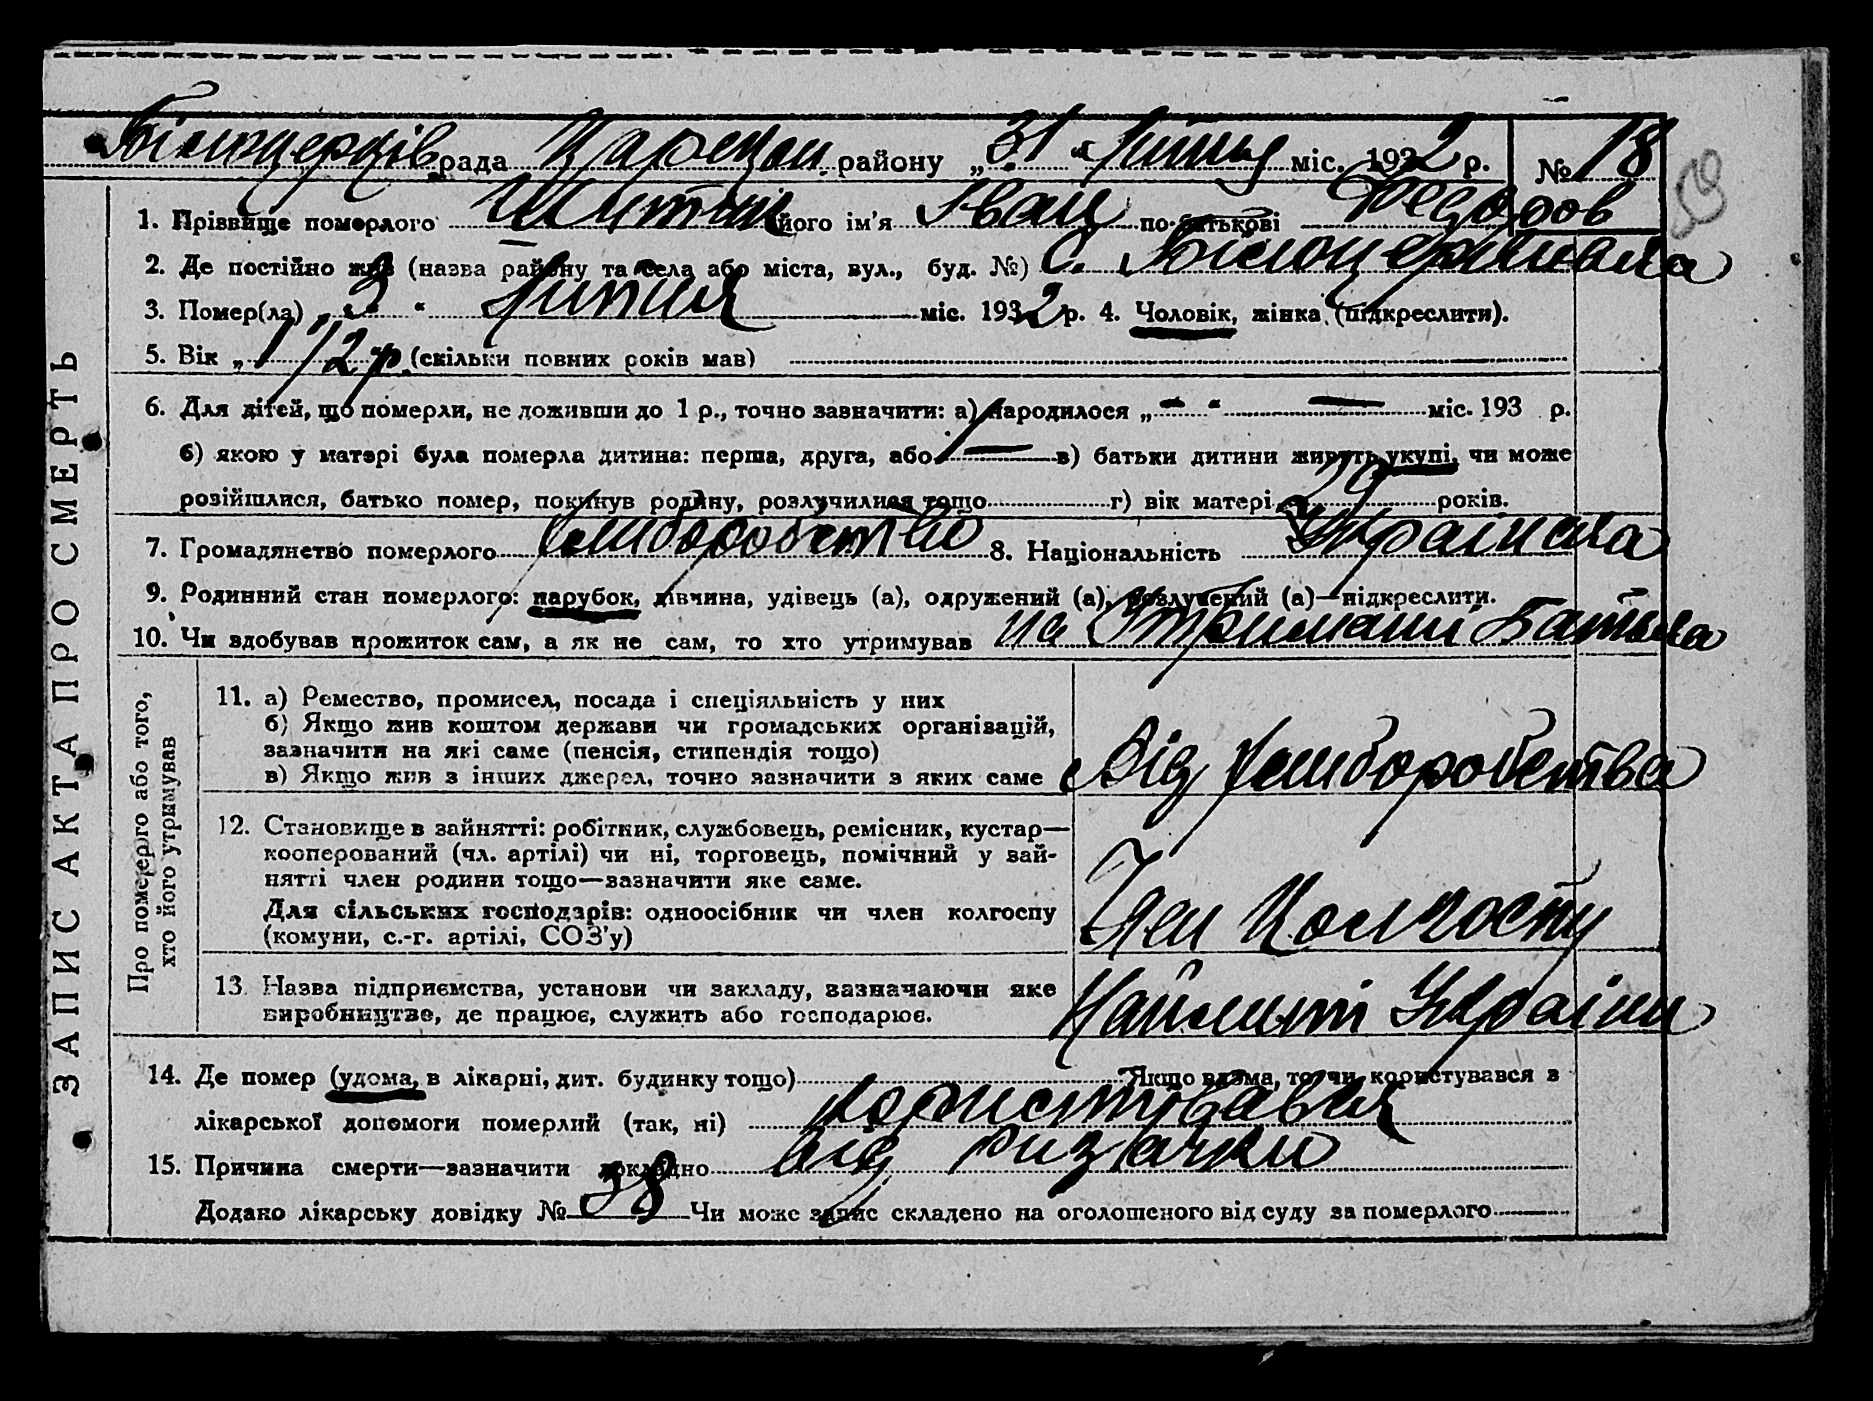 ЗАПИС АКТА ПРО СМЕРТЬ
Білоцерків. рада Царечан. району „31“ Липня міс. 1932 р. № 18
1. Прізвище померлого його ім'я Іван по-батькові Федоров
2. Де постійно жив (назва району та села або міста, вул., буд. №) С. Білоцерківка
3. Помер(ла) „3“ Липня міс. 1932 р. 4. Чоловік, жінка (підкреслити).
5. Вік „1 1/2 р. (скільки повних років мав)
6. Для дітей, що померли, не доживши до 1 р., точно зазначити: а) народилося „—“ — міс. 193 р.
б) якою у матері була померла дитина: перша, друга, або — в) батьки дитини живуть укупі, чи може
розійшлися, батько помер, покинув родину, розлучилися тощо г) вік матері 29 років.
7. Громадянство померлого хлиборобство 8. Національність Українка
9. Родинний стан померлого: парубок, дівчина, удівець (а), одружений (а), розлучений (а)—підкреслити.
10. Чи здобував прожиток сам, а як не сам, то хто утримував на Утримани Батька
Про померлого або того,
хто його утримував
11. а) Ремество, промисел, посада і спеціяльність у них
б) Якщо жив коштом держави чи громадських організацій,
зазначити на які саме (пенсія, стипендія тощо)
в) Якщо жив з інших джерел, точно зазначити з яких саме
Від хлиборобства
12. Становище в зайнятті: робітник, службовець, ремісник, кустар—
кооперований (чл. артілі) чи ні, торговець, помічний у зай-
нятті член родини тощо—зазначити яке саме.
Для сільських господарів: одноосібник чи член колгоспу
(комуни, с.-г. артілі, СОЗ'у)
Член Колгоспу
13. Назва підприємства, установи чи закладу, зазначаючи яке
виробництво, де працює, служить або господарює.
України
14. Де помер (удома, в лікарні, дит. будинку тощо) Якщо вдома, то чи користувався з
лікарської допомоги померлий (так, ні) користвався
15. Причина смерти—зазначити докладно Від ризачки
Додано лікарську довідку № 38 Чи може запис складено на оголошеного від суду за померлого